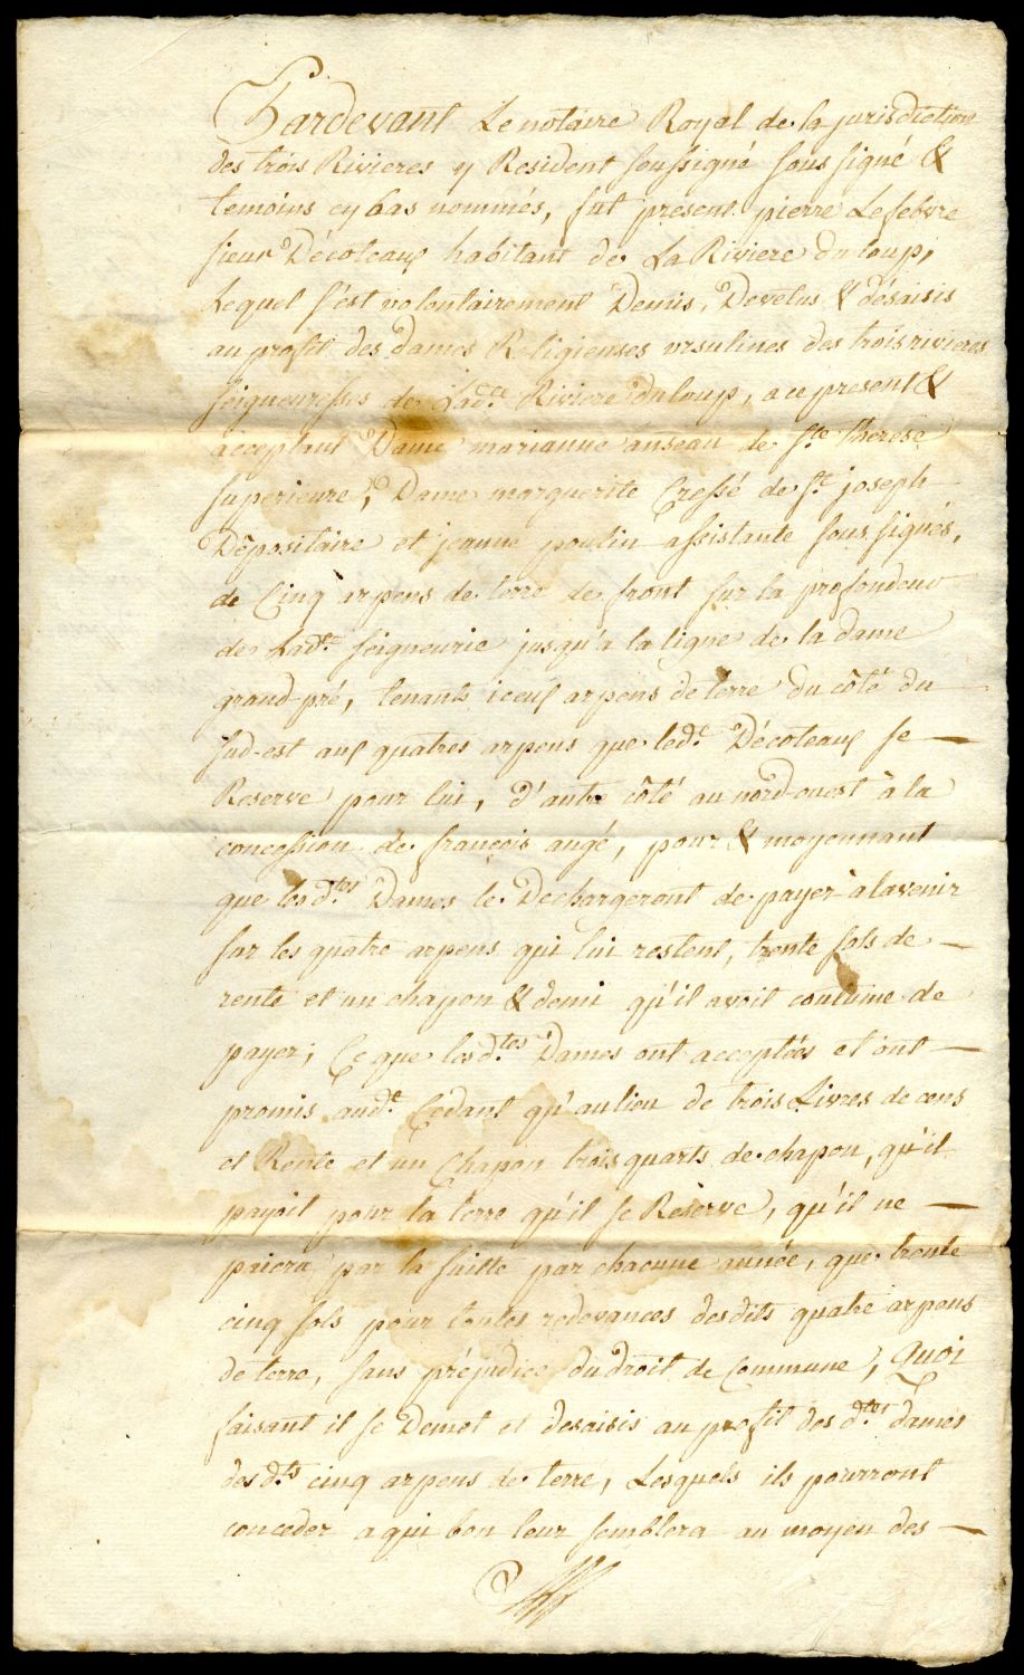 Pardevant Le notaire Royal de la jurisdiction
des trois Rivieres y Resident soussigné sous signé &
temoins cy bas nommés, fut present pierre Lefebvre
sieur Décoteaux habitant de La Riviere du loup,
Lequel s'est volontairement Demis, Devetus & désaisis
au profit des Dames Religieuses ursulines des trois rivieres
seigneuresses de Lad.te Riviere du loup, a ce present &
acceptant Dame marianne anseau de S.te therese
superieure, Dame marguerite Cressé de S.t joseph
Dépositaire et jeanne poulin assistante sous signés,
de Cinq arpens de terre de front sur la profondeur
de Lad.te seigneurie jusqu'a la ligne de la dame
grand-pré, tenants iceux arpens de terre du côté du
sud-est aux quatres arpens que led.t Décoteaux se —
Reserve pour lui, d'autre côté au nord-ouest à la
concession de françois augé, pour & moyennant
que les d.tes Dames le Dechargeront de payer à lavenir
sur les quatre arpens qui lui restent, trente sols de —
rente et un chapon & demi qu'il avoit coutume de
payer; Ce que les d.tes Dames ont acceptées et ont —
promis aud.t Cedant qu'au lieu de trois Livres de cens
et Rente et un Chapon trois quarts de chapon, qu'il
payoit pour la terre qu'il se Reserve, qu'il ne —
paiera par la suitte par chacune année, que trente
cinq sols pour toutes redevances desdits quatre arpens
de terre, sans préjudice du droit de Commune, Quoi
faisant il se Demet et desaisis au profit des d.tes dames
des d.ts cinq arpens de terre, Lesquels ils pourront
conceder a qui bon leur semblera au moyen des —